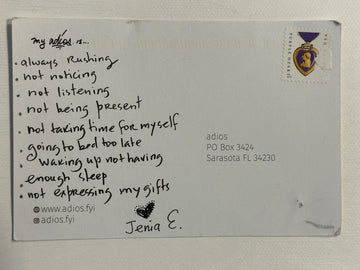 my adios is...
• always rushing
• not noticing
• not listening
• not being present
• not taking time for myself
• going to bed too late
• waking up not having
enough sleep
• not expressing my gifts
www.adios.fyi
adios.fyi
Jenia E.
PURPLE HEART
USA
adios
PO Box 3424
Sarasota FL 34230